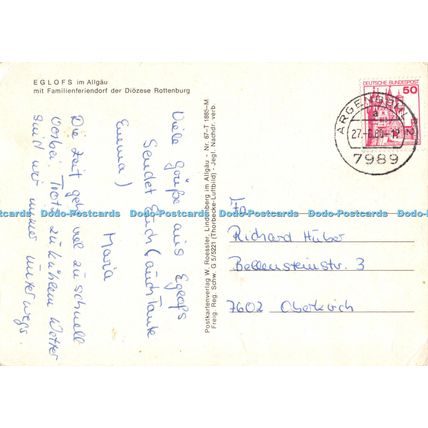 EGLOFS im Allgäu
mit Familienferiendorf der Diözese Rottenburg
Viele Grüße aus Eglofs
Sendet Euch (auch Tante
Emma)
Maria
Die Zeit geht viel zu schnell
vorbei. Trotz zu kühlem Wetter
sind wir immer unterwegs
Postkartenverlag W. Roessler, Lindenberg im Allgäu - Nr. 67-T 1885-M
Freig. Reg. Schw. G 5/5221 (Thorbecke-Luftbild) - Jegl. Nachdr. verb.
DEUTSCHE BUNDESPOST
50
ARGENBÜHL 2
a
7989
Dodo-Postcards Dodo-Postcards Dodo-Postcards Dodo-Postcards
Richard Huber
Bellensteinstr. 3
7602 Oberkirch